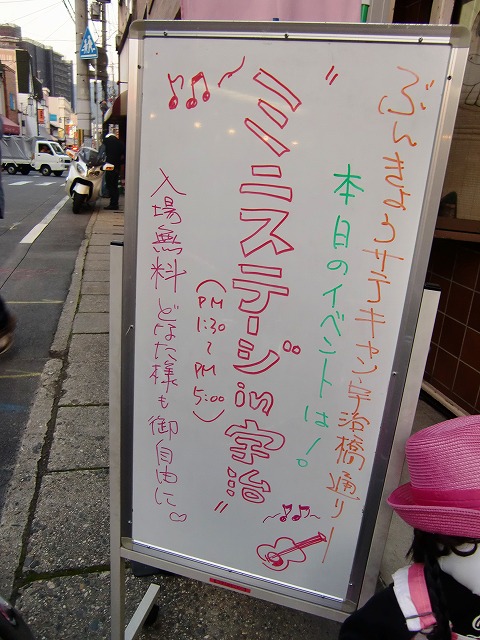 ぶんきょうサテキャン宇治橋通り
本日のイベントは!。
"ミニステージin宇治"
(PM 1:30 〜 PM 5:00)
入場無料 どなた様も御自由に♡